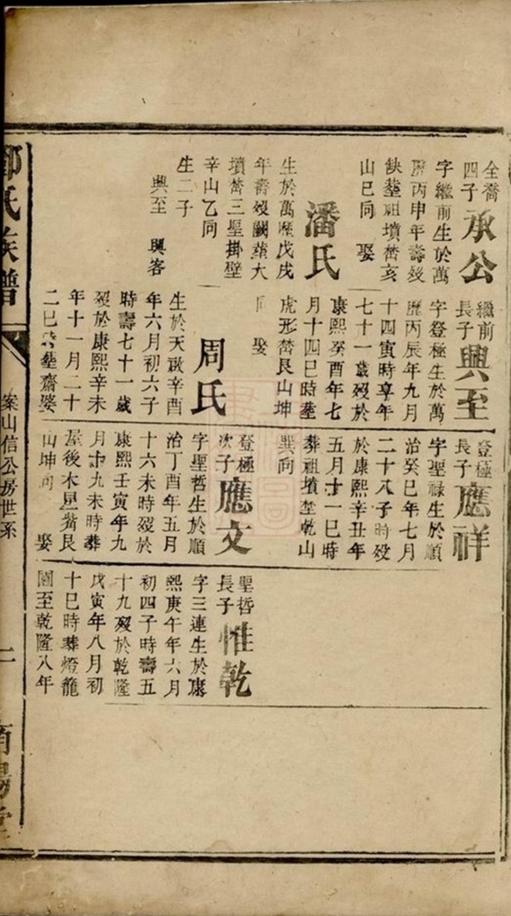 全喬
四子
承公
字繼前生於萬
曆丙申年壽歿
缺塟祖墳嵆亥
山巳向 娶
潘氏
生於萬曆戊戌
年壽歿闕塟大
墳嵆三星掛壁
辛山乙向
生二子
興至 興客
繼前
長子
興至
字登極生於萬
曆丙辰年九月
十四寅時享年
七十一歲歿於
康熙癸酉年七
月十四巳時塟
虎形嵆艮山坤
向 娶
周氏
生於天啟辛酉
年六月初六子
時壽七十一歲
歿於康熙辛未
年十一月二十
二巳時塟齋婆
登極
長子
應祥
字聖祿生於順
治癸巳年七月
二十八子時歿
於康熙辛丑年
五月十一巳時
葬祖墳塋乾山
巽向
登極
次子
應文
字聖哲生於順
治丁酉年五月
十六未時歿於
康熙壬寅年九
月十九未時葬
屋後木星嵆艮
山坤向 娶
聖哲
長子
惟乾
字三連生於康
熙庚午年六月
初四子時壽五
十九歿於乾隆
戊寅年八月初
十巳時葬燈籠
圖至乾隆八年
鄧氏族譜
案山信公房世系
二
南陽堂